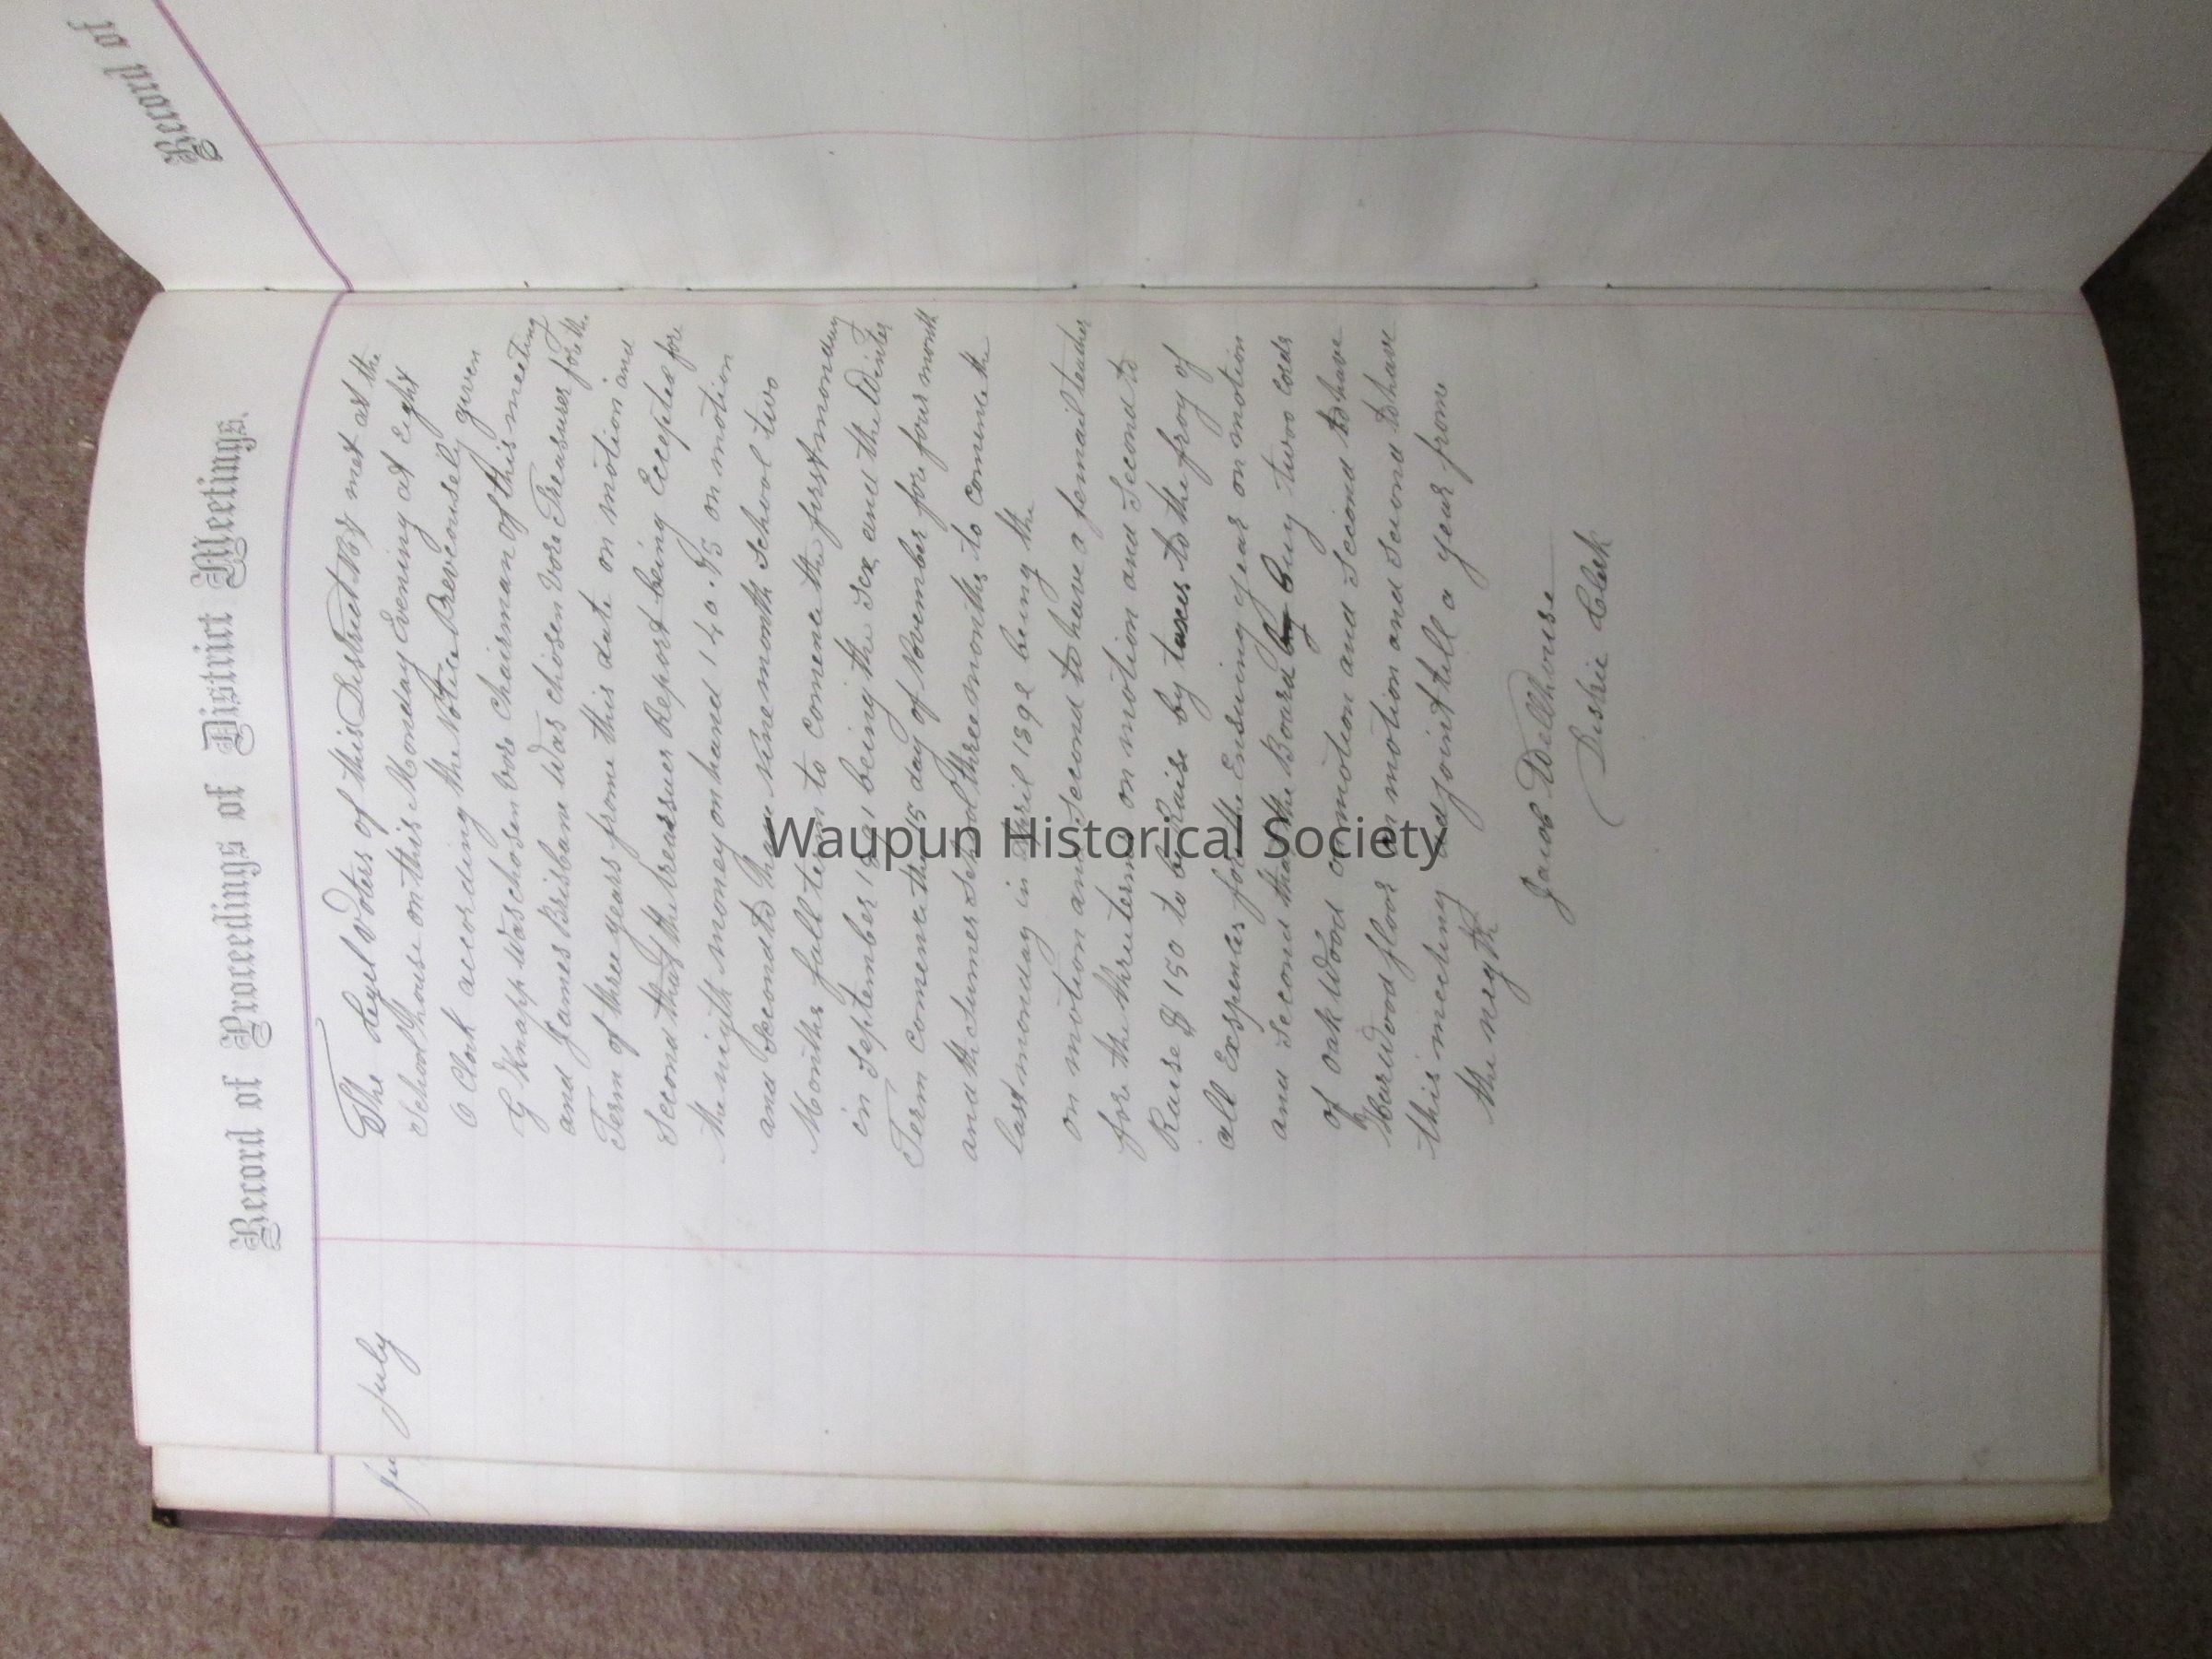 Record of
Record of Proceedings of District Meetings.
July
The Legel Voters of this District No 8 met at the
School house on this Monday Evening at Eight
O Clock according the Notice Preveousely given
G Knapp Was chosen Vore Chairman of this meeting
and James Brisbane Was chosen Vore Treasurer fore the
Term of three years frome this date on motion and
Second that the treasurer Report being Eccepted fore
the rigth money on hand 140.75 on motion
and Second to have nine month School two
Months fall term to Comence the first monday
in September 1891 being the Sex and the Winter
Term Comence the 15 day of November fore four month
and the Sumer School three months to Comence the
last monday in April 1892 being the
on motion and Second to have a femail teacher
for the three terms on motion and Second to
Raise $ 150 to be Raise by taxes to the froy of
all Exspences for the Ensuing year on motion
and Second that the Board by buy twoo Cords
of oak Wood on motion and Second to have
Harwood floor on motion and Second to have
this meeting adjoint till a year from
the
Jacob Wellhouse
Distric Clerk
Waupun Historical Society